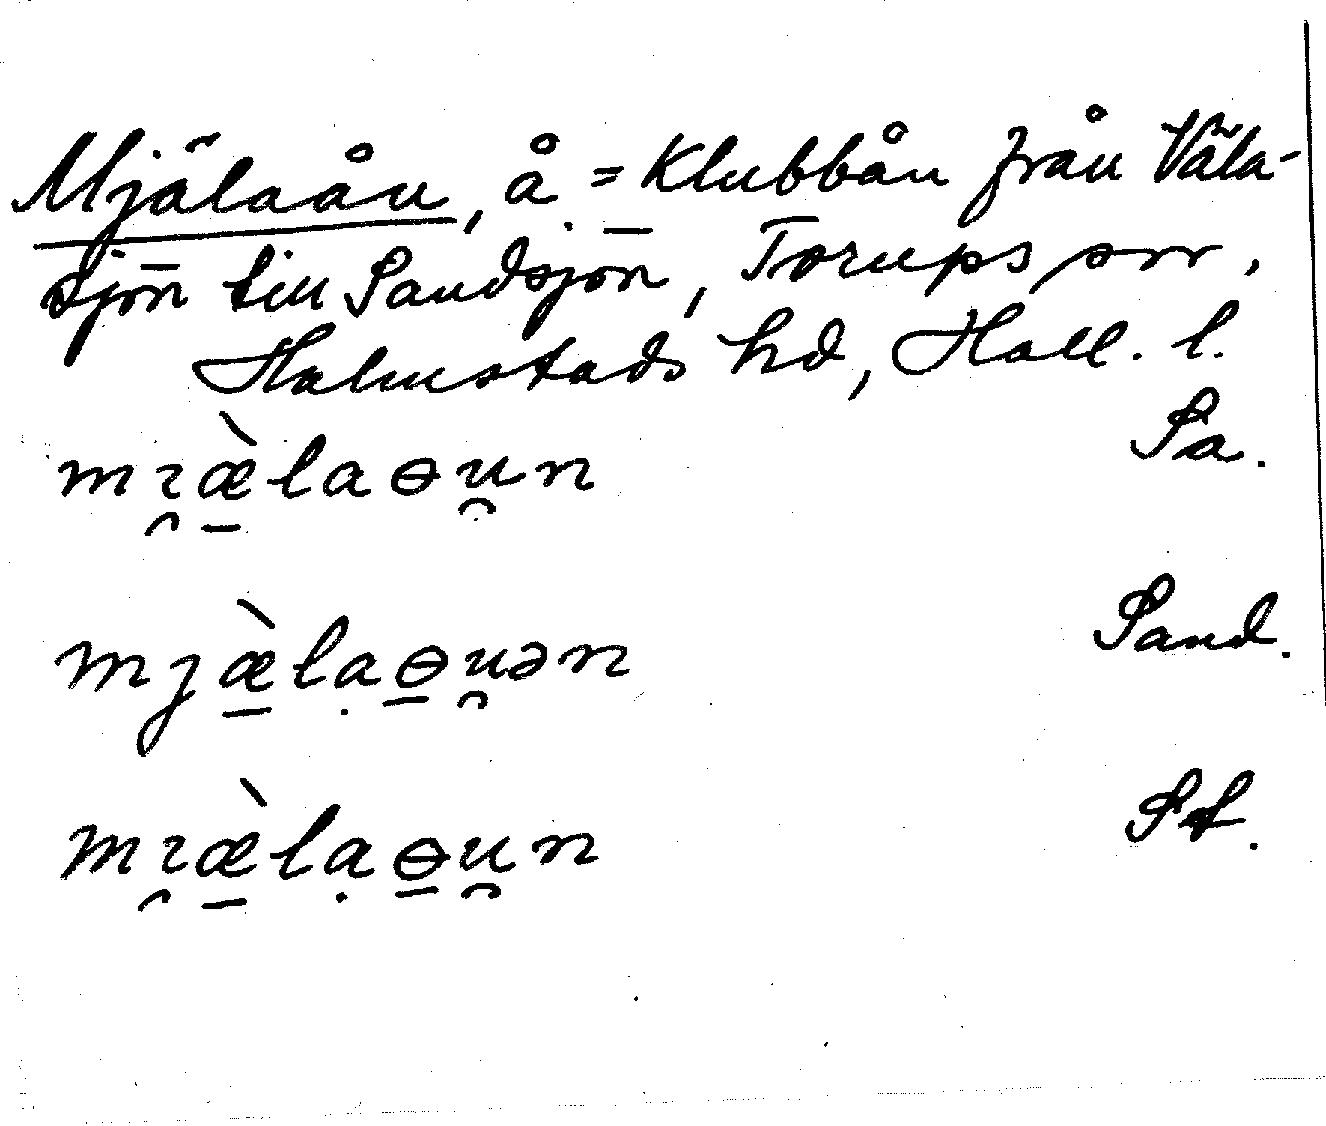 Mjälaån, å = Klubbån från Väla-
sjön till Sandsjön, Torups snr,
Halmstads hd, Hall. l.
mɪ̯æ̠̀laɵu̯n Sa.
mjæ̠̀lạɵ̠u̯ən Sand.
mɪ̯æ̠̀lạɵ̠u̯n St.